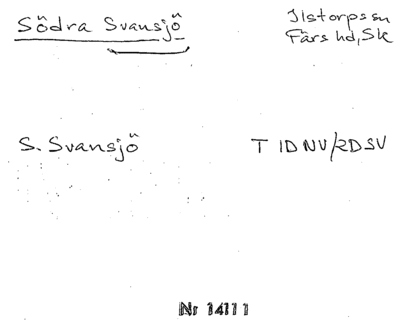 Södra Svansjö
Ilstorps sn
Färs hd, Sk
S. Svansjö
T 1D NV/2D SV
Nr 14111